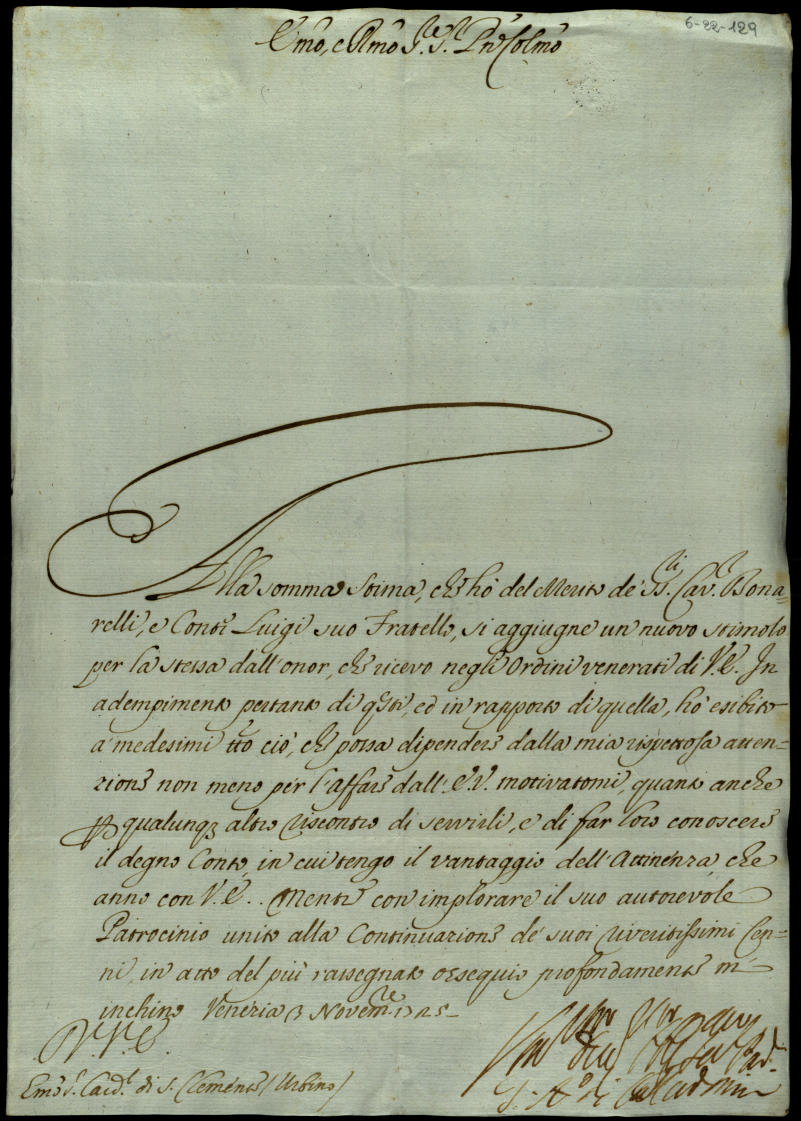 6-22-129
Emo, e Rmo Sre Sr Pne Colmo
Alla somma Stima, che hò del Merito de' SS.ri Cav.r Bona=
relli, e Conte Luigi suo Fratello, si aggiugne un nuovo stimolo
per la stessa dall'onor, che ricevo negli Ordini venerati di V.E. In
adempimento pertanto di qsti, ed in rapporto di quella, hò esibito
a' medesimi tto ciò, che possa dipendere dalla mia rispettosa atten=
zione non meno per l'affare dall'E.V. motivatomi, quanto anche
qualunq; altro riscontro di servirli, e di far loro conoscere
il degno Conto, in cui tengo il vantaggio dell'Attinenza, che
anno con V.E.. Mentre con implorare il suo autorevole
Patrocinio unito alla Continuazione de' suoi riveritissimi Cen=
ni, in atto del più rassegnato ossequio profondamente m'
inchino Venezia 3 Novem.re 1725
D.V.E.
Emo Sr Card.l di S. Clemente / Urbino /